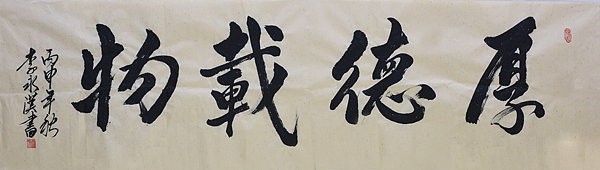 厚德載物
丙申年秋
李永漢書